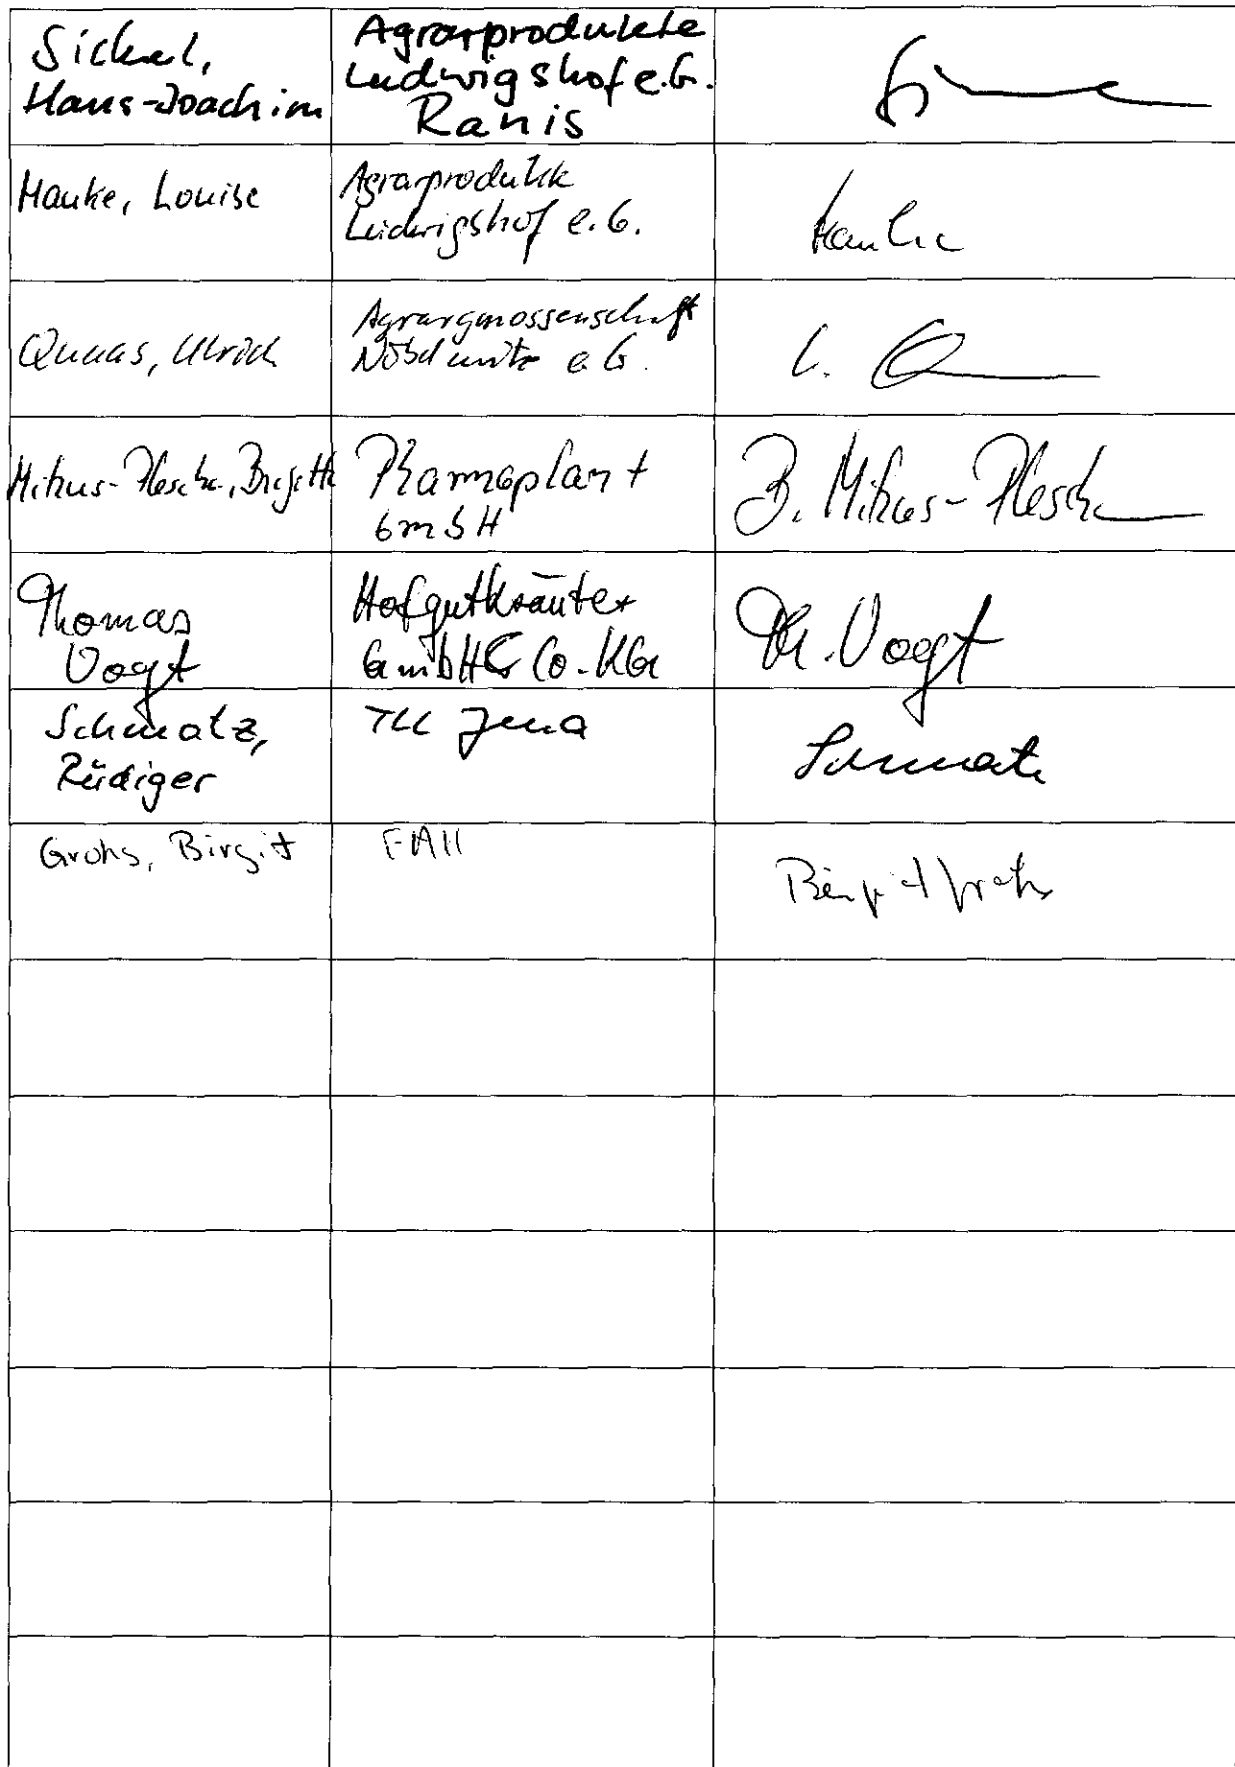 Sickel,
Hans-Joachim
Agrarprodukte
Ludwigshof e.G.
Ranis
Hauke, Louise
Agrarprodukte
Ludwigshof e.G.
Hauke
Quaas, Ulrich
Agrargenossenschaft
Nöbdenitz e.G.
Mikus-Plescher, Brigitte
Pharmaplant
GmbH
B. Mikus-Plescher
Thomas
Vogt
Hofgutkräuter
GmbH & Co. KG
Th. Vogt
Schmatz,
Rüdiger
TLL Jena
Schmatz
Grohs, Birgit
Birgit Grohs